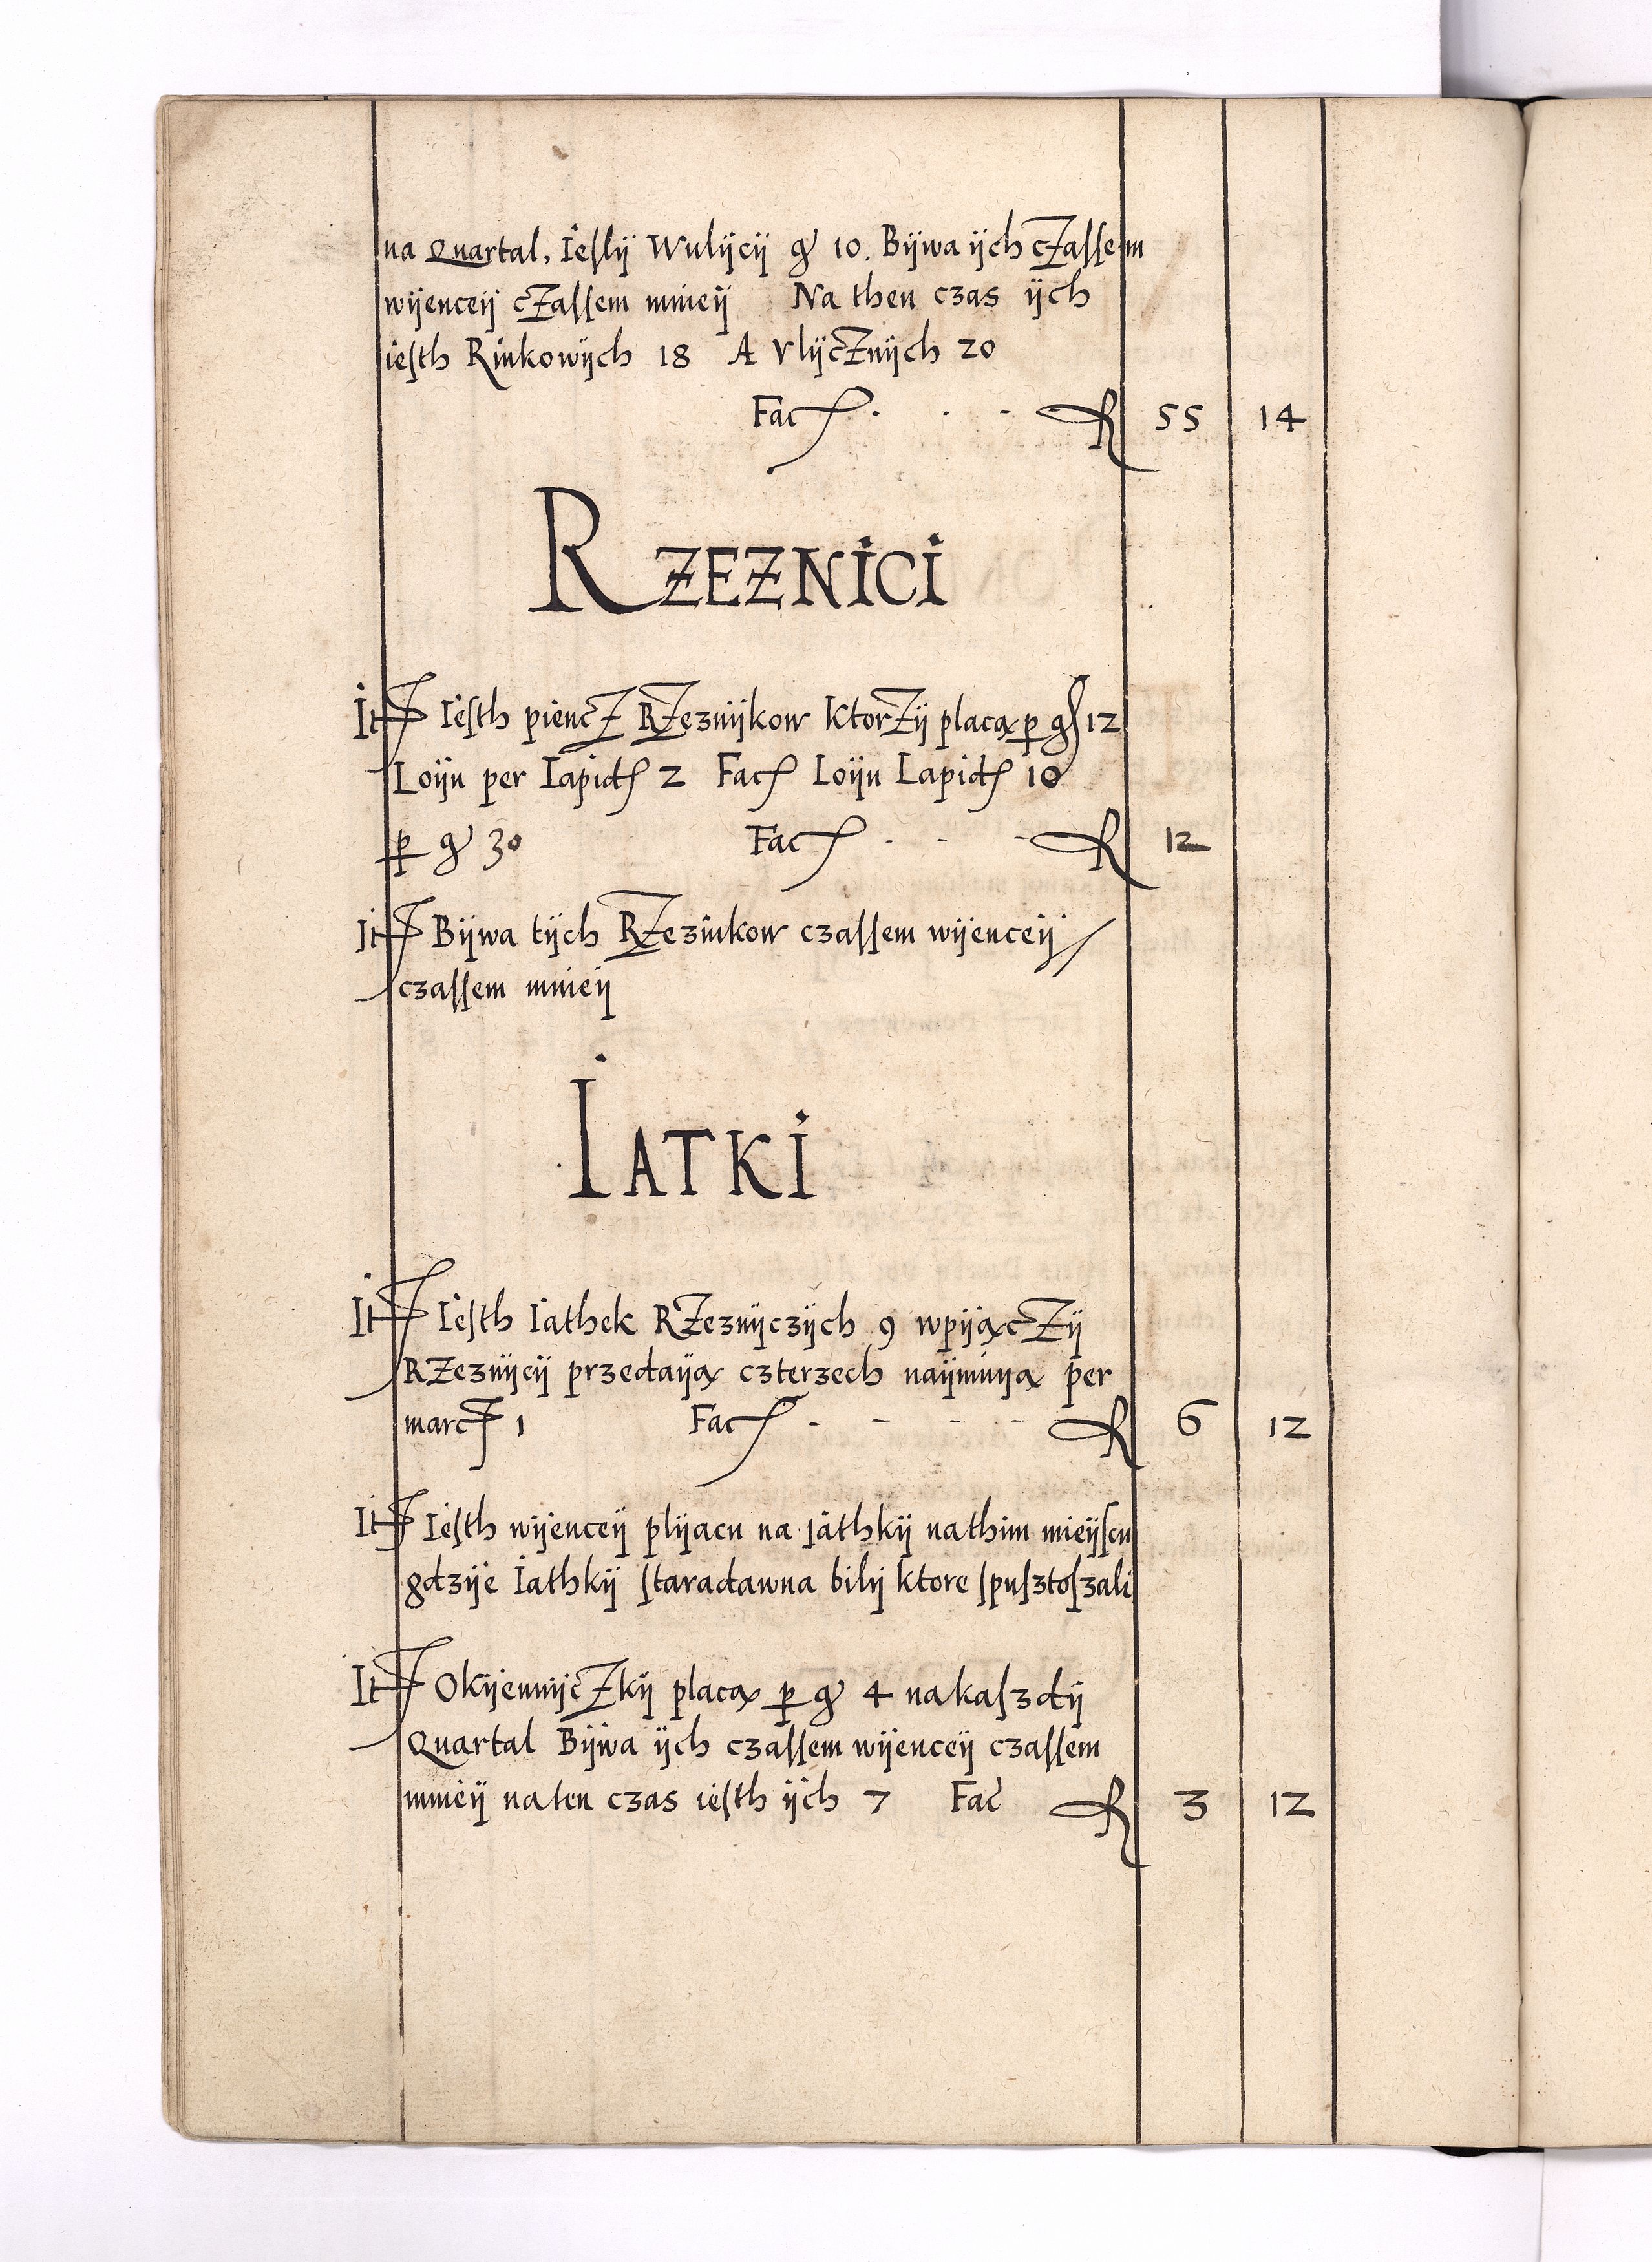 na Quartal, Ieſlÿ Wulÿcÿ gͬ 10. Bÿwa ÿch czaſſem
wÿenceÿ czaſſem mnieÿ Na then czas ÿch
ieſth Rinkowÿch 18 A Vlÿcznÿch 20
Fac R 55 14
RZEZNICI
It Ieſth piencz Rzeznÿkow Ktorzÿ placą ꝑ g 12
Loÿu per Lapid 2 Fac Loÿu Lapid 10
ꝑ g 30 Fac R 12
It Bÿwa tÿch Rzeznikow czaſſem wÿenceÿ
czaſſem mnieÿ
IATKI
It Ieſth Iathek Rzeznÿczÿch 9 wpÿączÿ
Rzeznÿcÿ przedaÿą czterzech naÿmuÿą per
marc 1 Fac R 6 12
It Ieſth wÿenceÿ plÿacu na iathkÿ nathim mieÿſcu
gdzÿe Iathkÿ ſtaradawna bilÿ ktore ſpuſztoſzali
It Okÿennÿczkÿ placą ꝑ g 4 nakaſzdÿ
Quartal Bÿwa ÿch czaſſem wÿenceÿ czaſſem
mnieÿ naten czas ieſth ÿch 7 Fac R 3 12